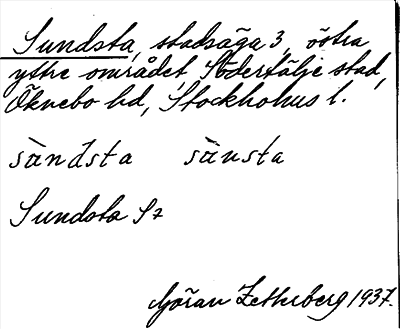 Sundsta, stadsäga 3, östra
yttre området, Södertälje stad,
Öknebo hd, Stockholms l.
sùndsta sùnsta
Sundsta Sz
Göran Zetterberg 1937.